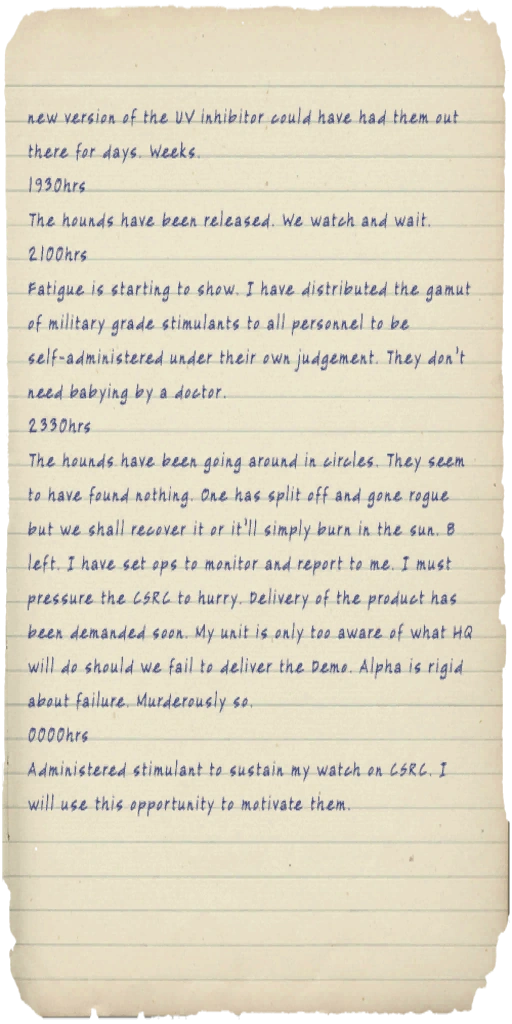 new version of the UV inhibitor could have had them out
there for days. Weeks.
1930hrs
The hounds have been released. We watch and wait.
2100hrs
Fatigue is starting to show. I have distributed the gamut
of military grade stimulants to all personnel to be
self-administered under their own judgement. They don't
need babying by a doctor.
2330hrs
The hounds have been going around in circles. They seem
to have found nothing. One has split off and gone rogue
but we shall recover it or it'll simply burn in the sun. 8
left. I have set ops to monitor and report to me. I must
pressure the CSRC to hurry. Delivery of the product has
been demanded soon. My unit is only too aware of what HQ
will do should we fail to deliver the Demo. Alpha is rigid
about failure. Murderously so.
0000hrs
Administered stimulant to sustain my watch on CSRC. I
will use this opportunity to motivate them.